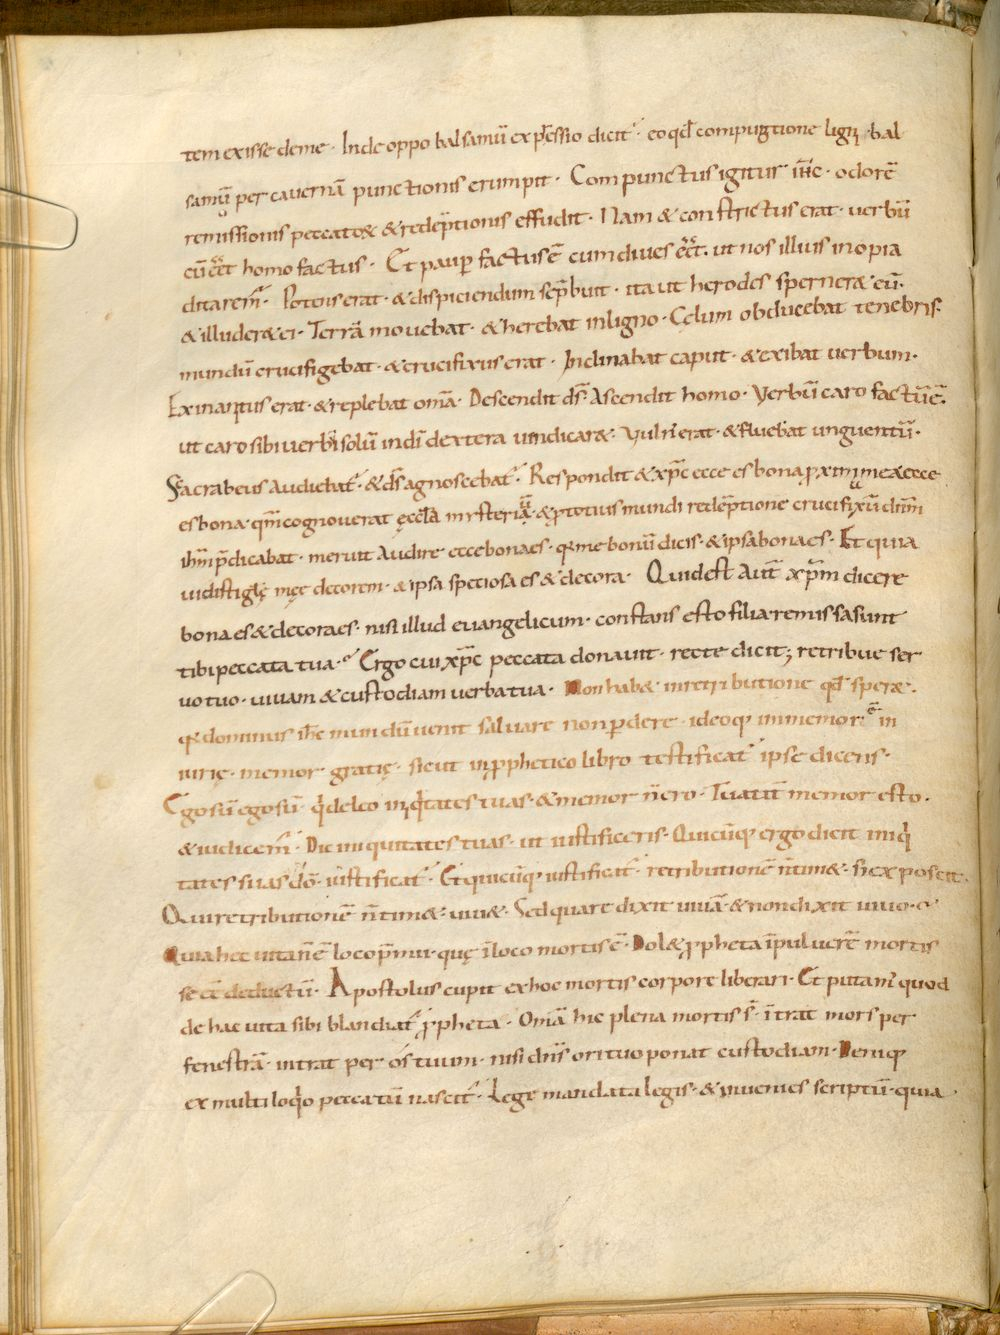 tem exisse de me · Inde oppobalsamū expressio dicit᷑ · eo qđ compugtione ligni · bal
samū per cavernā punctionis erumpit · Compunctus igitur ih̄c · odorē
remissionis peccato⁊ & redēptionis effudit · Nam & constrictus erat · verbū
cū eēt homo factus · Et paup factus ē cum dives eēt · ut nos illius inopia
ditarem᷑ · Potens erat · & dispiciendum se p̄buit · ita ut herodes sperner& eū ·
& illuder& ei · Terrā movebat · & herebat in ligno · Celum obducebat tenebris ·
mundū crucifigebat · & crucifixus erat · Inclinabat caput · & exibat verbum ·
Exinanitus erat · & replebat om̄a · Descendit d̄s · Ascendit homo · Verbū caro factū ē ·
ut caro sibi verbi soliū in dī dextera vindicar& · Vuln̄ erat · & fluebat unguentū ·
Scarabeus audiebat᷑ · & d̄s agnoscebat᷑ · Respondit & xp̄c ecce es bona proxima mea ecce
es bona · qm̄ cognoverat ęccl̄ā mysteria · & p totius mundi redēptione crucifixū dn̄m
ih̄m p̄dicabat · meruit audire ecce bona es · q᷑ me bonū dicis · & ipsa bona es · Et quia
vidisti glę męę decorem · & ipsa speciosa es & decora · Quid est aut̄ xp̄m dicere
bona es & decora es · nisi illud evangelicum · constans esto filia remissa sunt
tibi peccata tua · Ergo cui xp̄c peccata donavit · recte dicit; retribue ser
vo tuo · vivam & custodiam verba tua · Non hab& in retributione qđ sper& ·
q᷑ dominus ih̄c mundū venit salvare non pdere · ideoq inmemor ē in
iurię · memor gratię · sicut in pphetico libro testificat᷑ ipse dicens ·
Ego sū ego sū · q deleo iniq̇tates tuas · & memor n̄ ero · Tu aut̄ memor esto ·
& iudicem᷑ · Dic iniquitates tuas · ut iustificeris · Quicūq ergo dicit iniq̇
tates suas dō · iustificat᷑ · Et quicūq iustificat᷑ · retributionē n̄ tim& · s; exposcit ·
Qui retributionē n̄ tim& · viv& · Sed quare dixit vivā & non dixit vivo ·
Quia hec vita n̄ ē loco p̄mii · quę ī loco mortis ē · Dol& ppheta ī pulverē mortis
se eē deductū · Apostolus cupit ex hoc mortis corpore liberari · Et putam᷑ quod
de hac vita sibi blandiat᷑ ppheta · Om̄ā hic plena mortis s̄ · ītrat mors per
fenestrā · intrat per os tuum · nisi dn̄s ori tuo ponat custodiam · Deniq
ex multiloq̇o peccatū nascit᷑ · Lege mandata legis · & invenies scriptū · quia